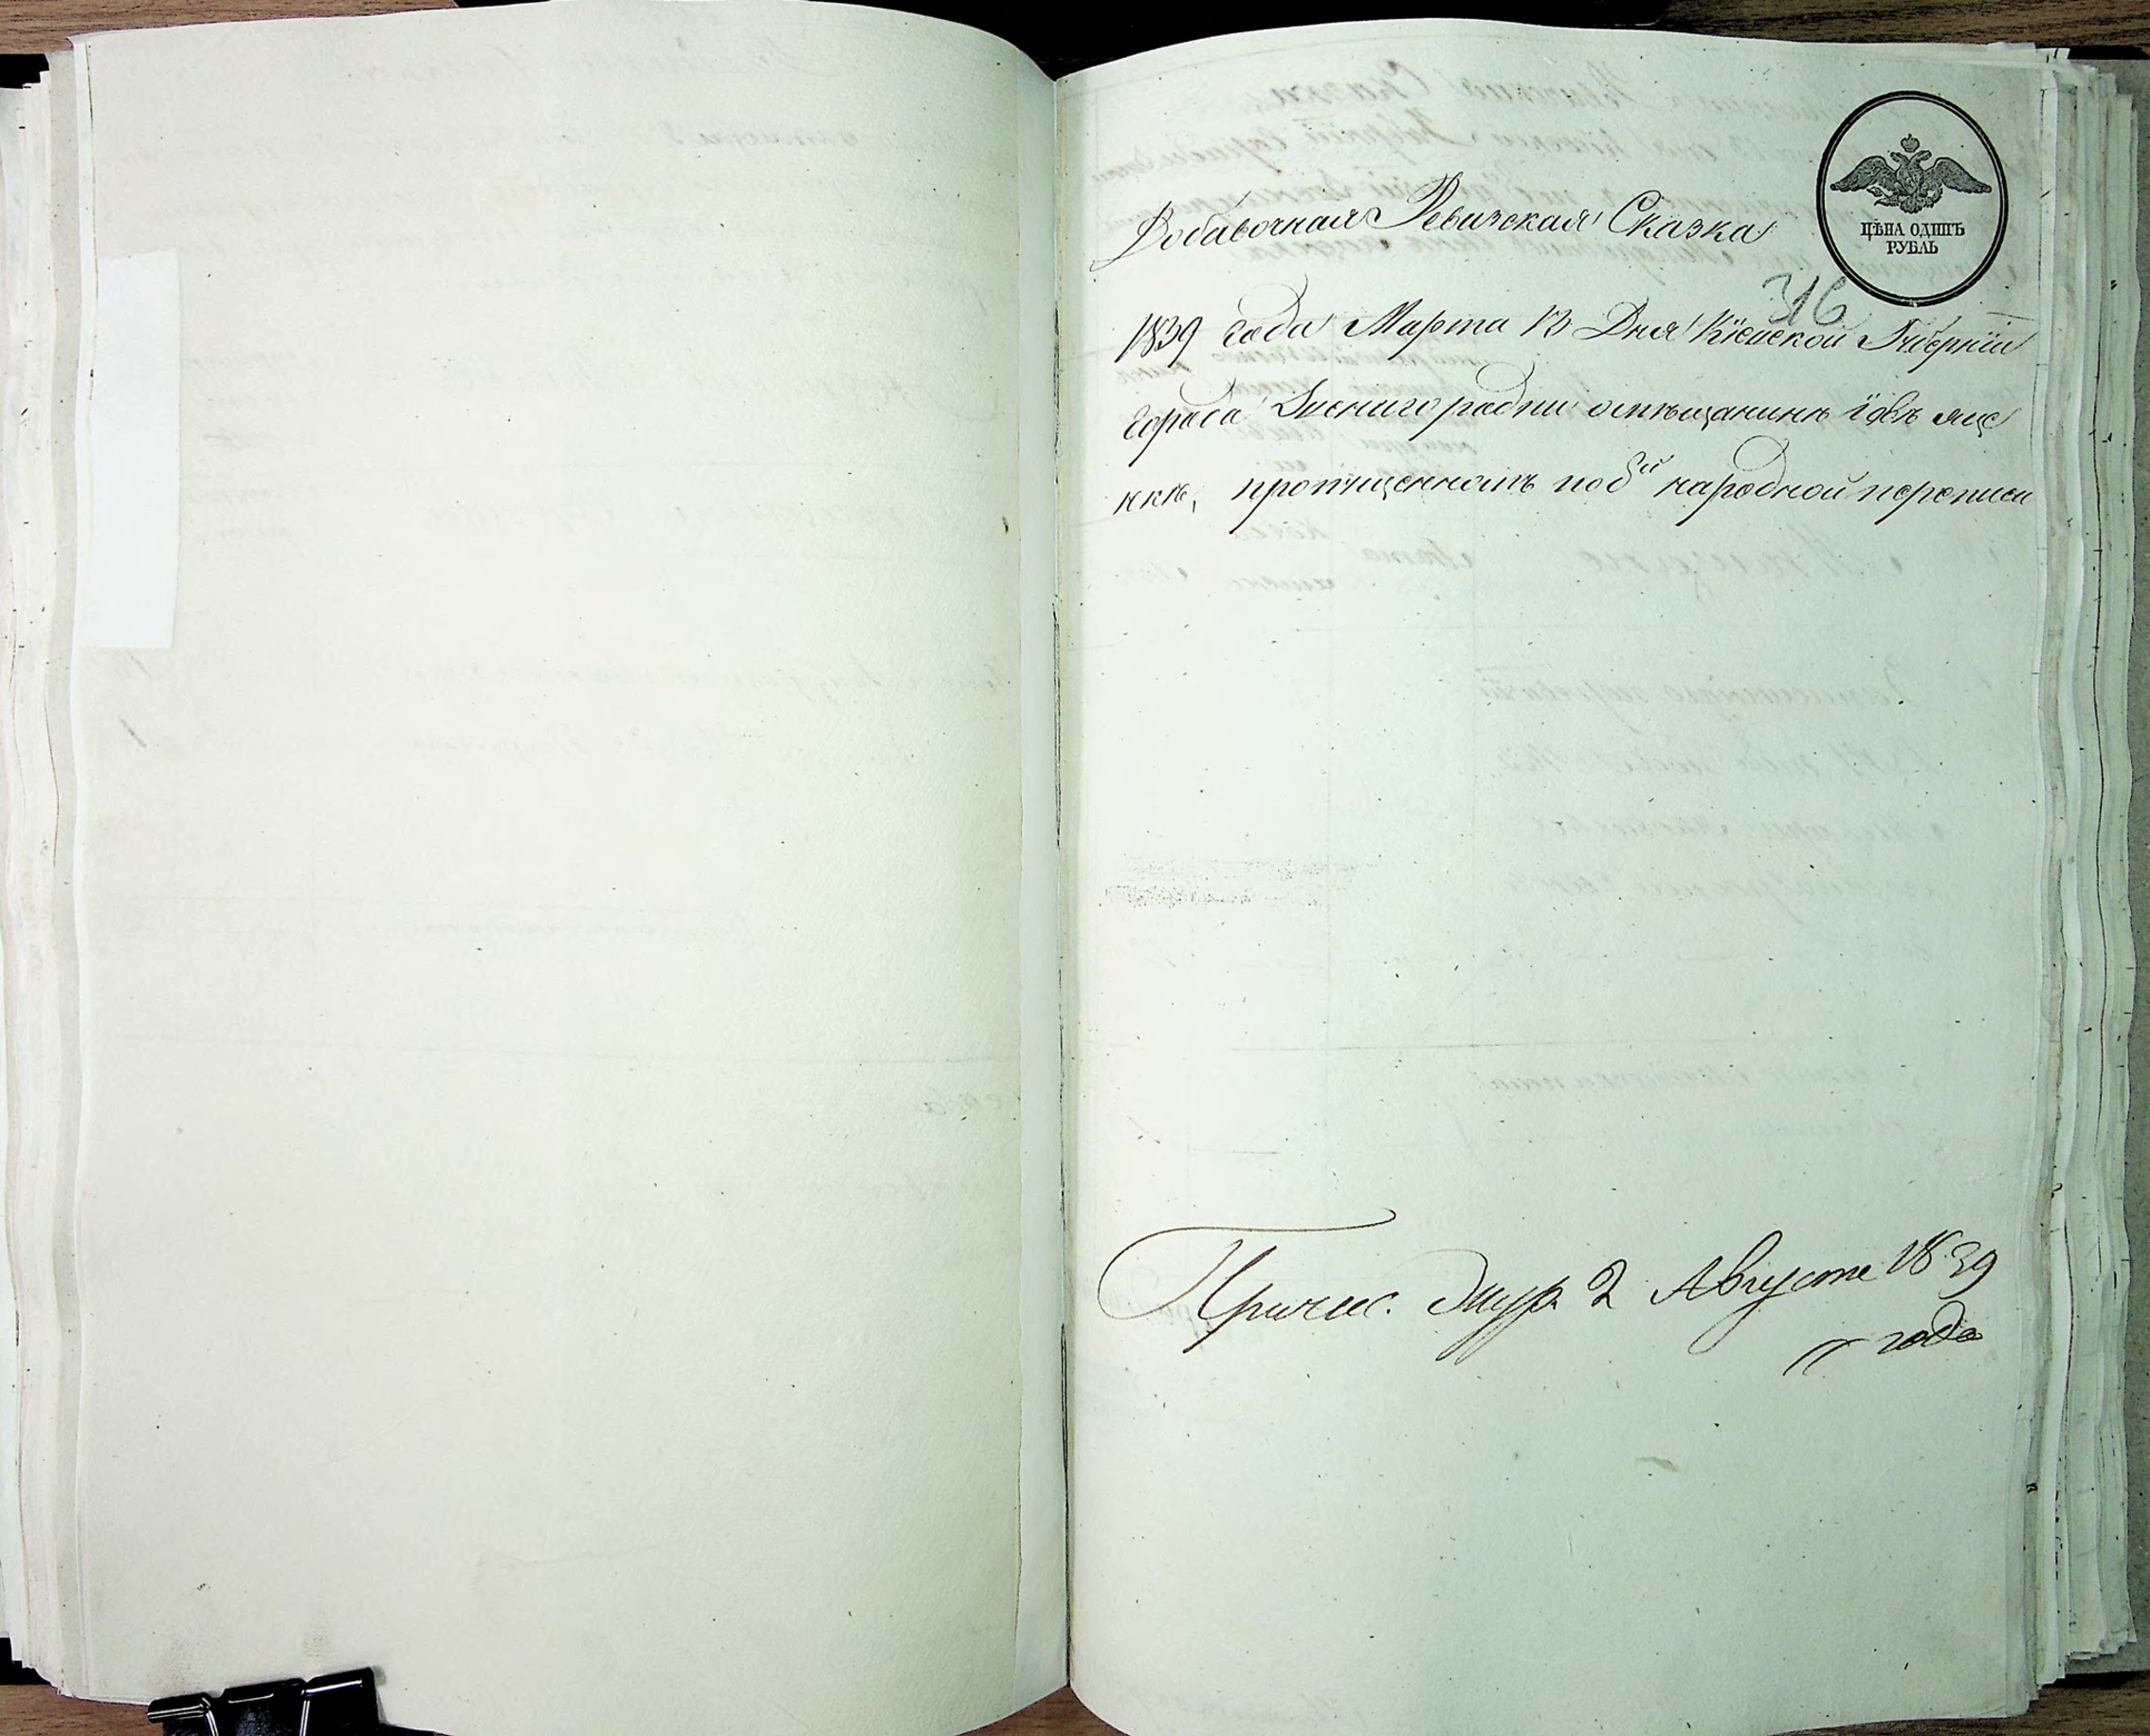 Добавочная Ревизская Сказка
ЦѢНА ОДИНЪ
РУБЛЬ
316
1839 года Марта 13 Дня Кіевской Губерніи
города Звенигородки омѣщанинѣ
пропущенномъ по 8й народной переписи
Причис. Августа 2 1839
года